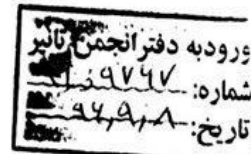 ورود به دفتر انجمن تایر
شماره: ۹۷۶۷
تاریخ: ۹۶,۹,۸